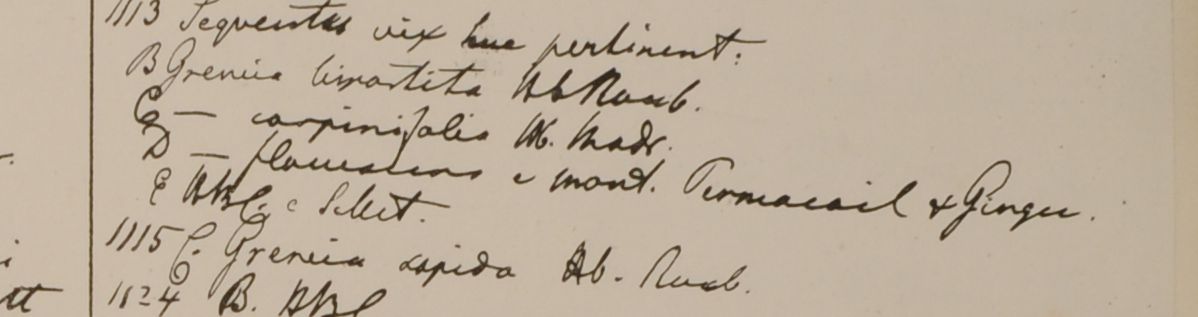 1113 Sequentes vix huc pertinent:
B Grewia bipartita Hb Roxb.
C — carpinifolia Hb. Madr.
D — flavescens e mont. Permacoil & Gingee.
E HBC. e Silhet.
1115 C. Grewia sapida Hb. Roxb.
1124 B. HBC